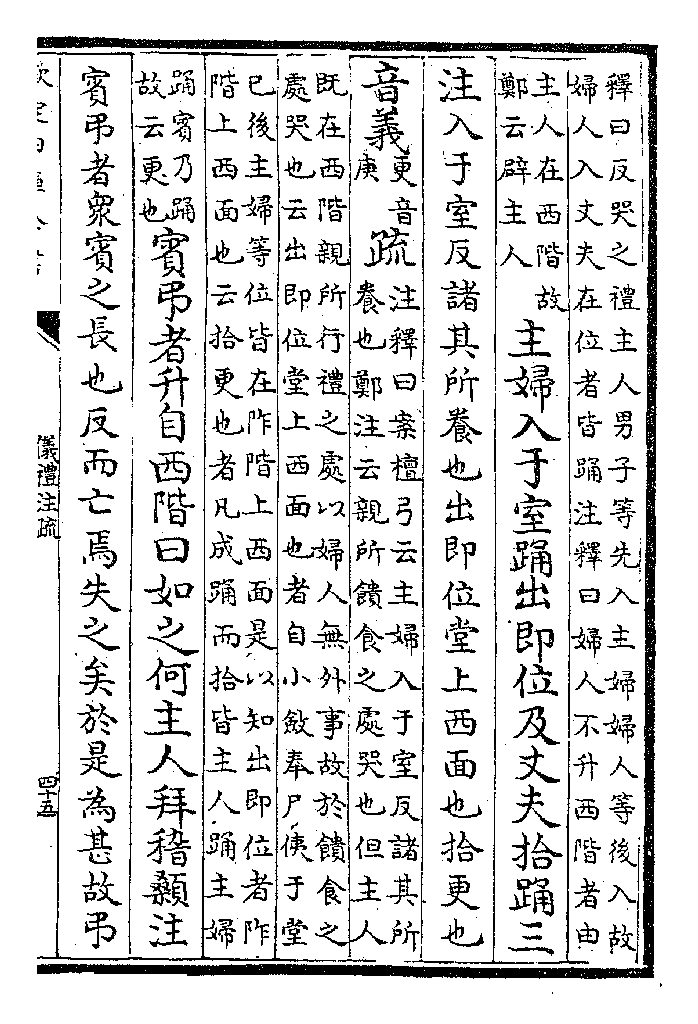 釋曰反哭之禮主人男子等先入主婦婦人等後入故
婦人入丈夫在位者皆踊注釋曰婦人不升西階者由
主人在西階故
鄭云辟主人
主婦入于室踊出即位及丈夫拾踊三
注入于室反諸其所養也出即位堂上西面也拾更也
音義
更音
庚
疏
注釋曰案檀弓云主婦入于室反諸其所
養也鄭注云親所饋食之處哭也但主人
既在西階親所行禮之處以婦人無外事故於饋食之
處哭也云出即位堂上西面也者自小斂奉尸侇于堂
已後主婦等位皆在阼階上西面是以知出即位者阼
階上西面也云拾更也者凡成踊而拾皆主人踊主婦
踊賓乃踊
故云更也
賓弔者升自西階曰如之何主人拜稽顙注
賓弔者眾賓之長也反而亡焉失之矣於是為甚故弔
儀禮注疏
四十五